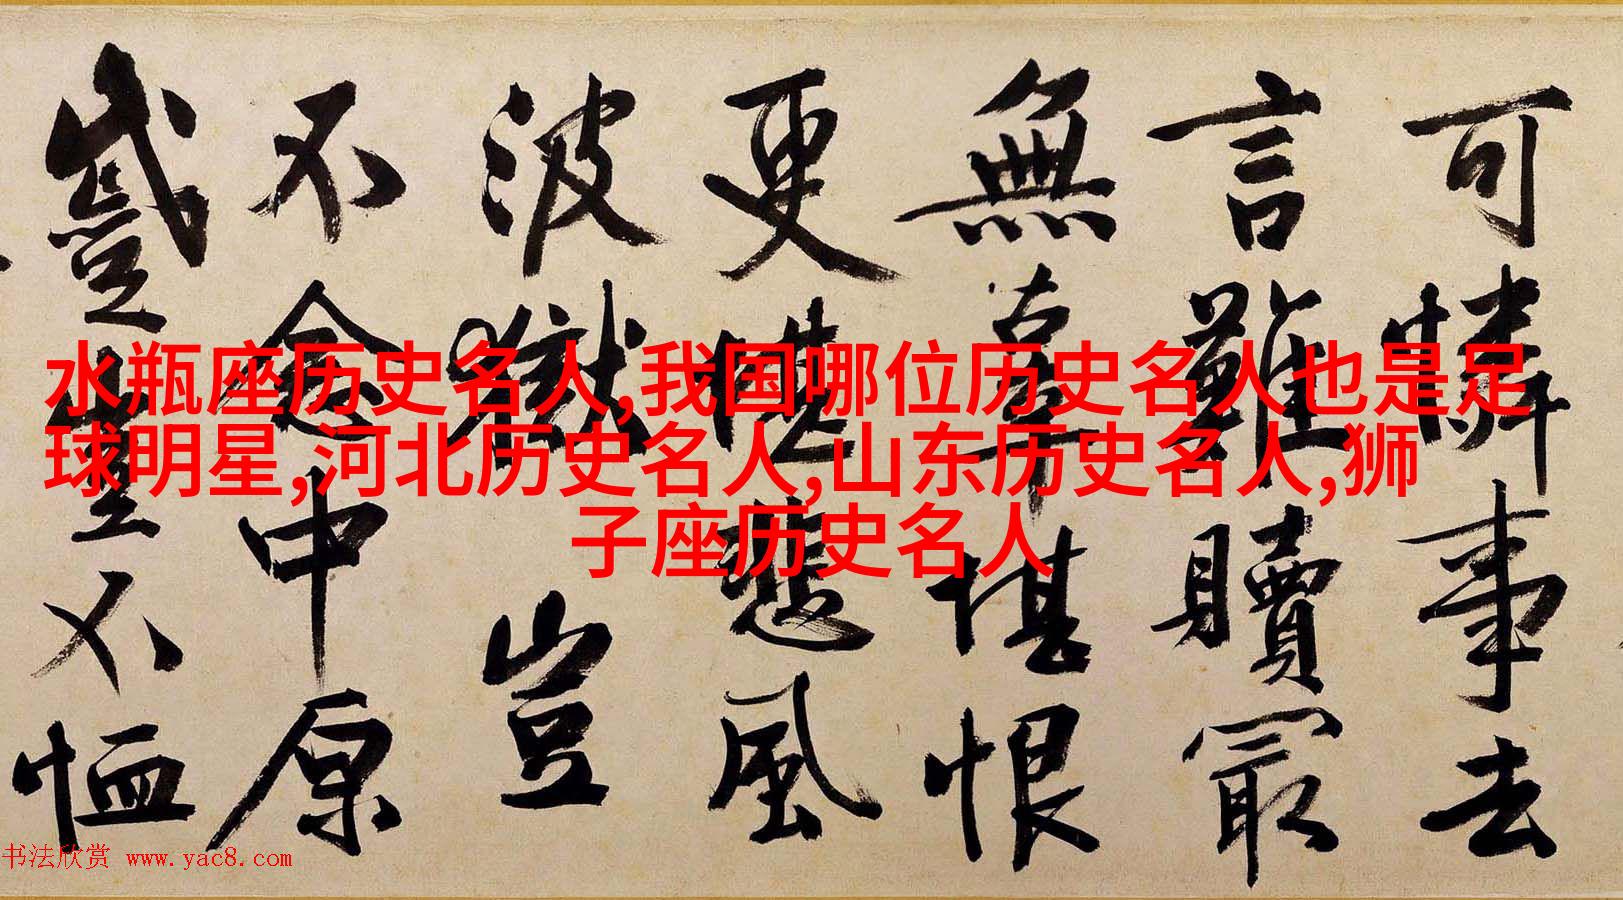 可憐事去
言難贖最
無辜堪恨
更堪悲風
波獄豈
不念中原
蹙豈不恤
水瓶座历史名人,我国哪位历史名人也是足
球明星,河北历史名人,山东历史名人,狮
子座历史名人
书法欣赏 www.yac8.com